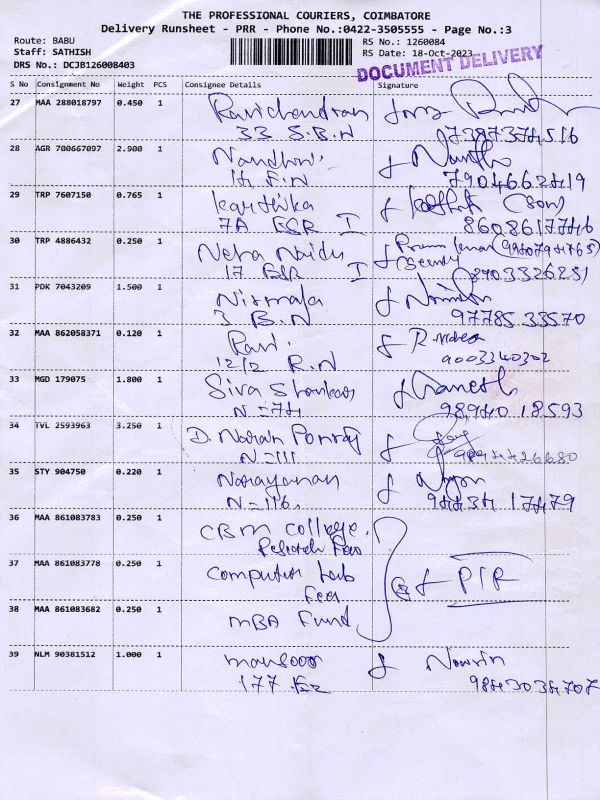 THE PROFESSIONAL COURIERS, COIMBATORE
Delivery Runsheet - PRR - Phone No.:0422-3505555 - Page No.:3
Route: BABU RS No.: 1260084
Staff: SATHISH RS Date: 18-Oct-2023
DRS No.: DCJB126008403
DOCUMENT DELIVERY
S No Consignment No Weight PCS Consignee Details Signature
27 MAA 288018797 0.450 1 Ravichandran
33 S.B.N 7397374516
28 AGR 700667097 2.900 1 Nandhini
14 F.N 7904662419
29 TRP 7607150 0.765 1 Karthika (Son)
7A ESR I 8608617746
30 TRP 4886432 0.250 1 Neha Naidu
17 ESR I Security 8903326251
31 PDK 7043209 1.500 1 Nirmala
3 B.N 97785 33570
32 MAA 862058371 0.120 1 Ravi
12/2 R.N 9003340302
33 MGD 179075 1.800 1 Siva Shankar Ganesh
N=74 98940 18593
34 TVL 2593963 3.250 1 D. Naran Ponraj
N=111
35 STY 904750 0.220 1 Narayanan
N=116. 94434 17479
36 MAA 861083783 0.250 1 CBM College.
37 MAA 861083778 0.250 1 Computer Lab
Fees
38 MAA 861083682 0.250 1 MBA Fund
39 NLM 90381512 1.000 1 mansoor
177 9843034707